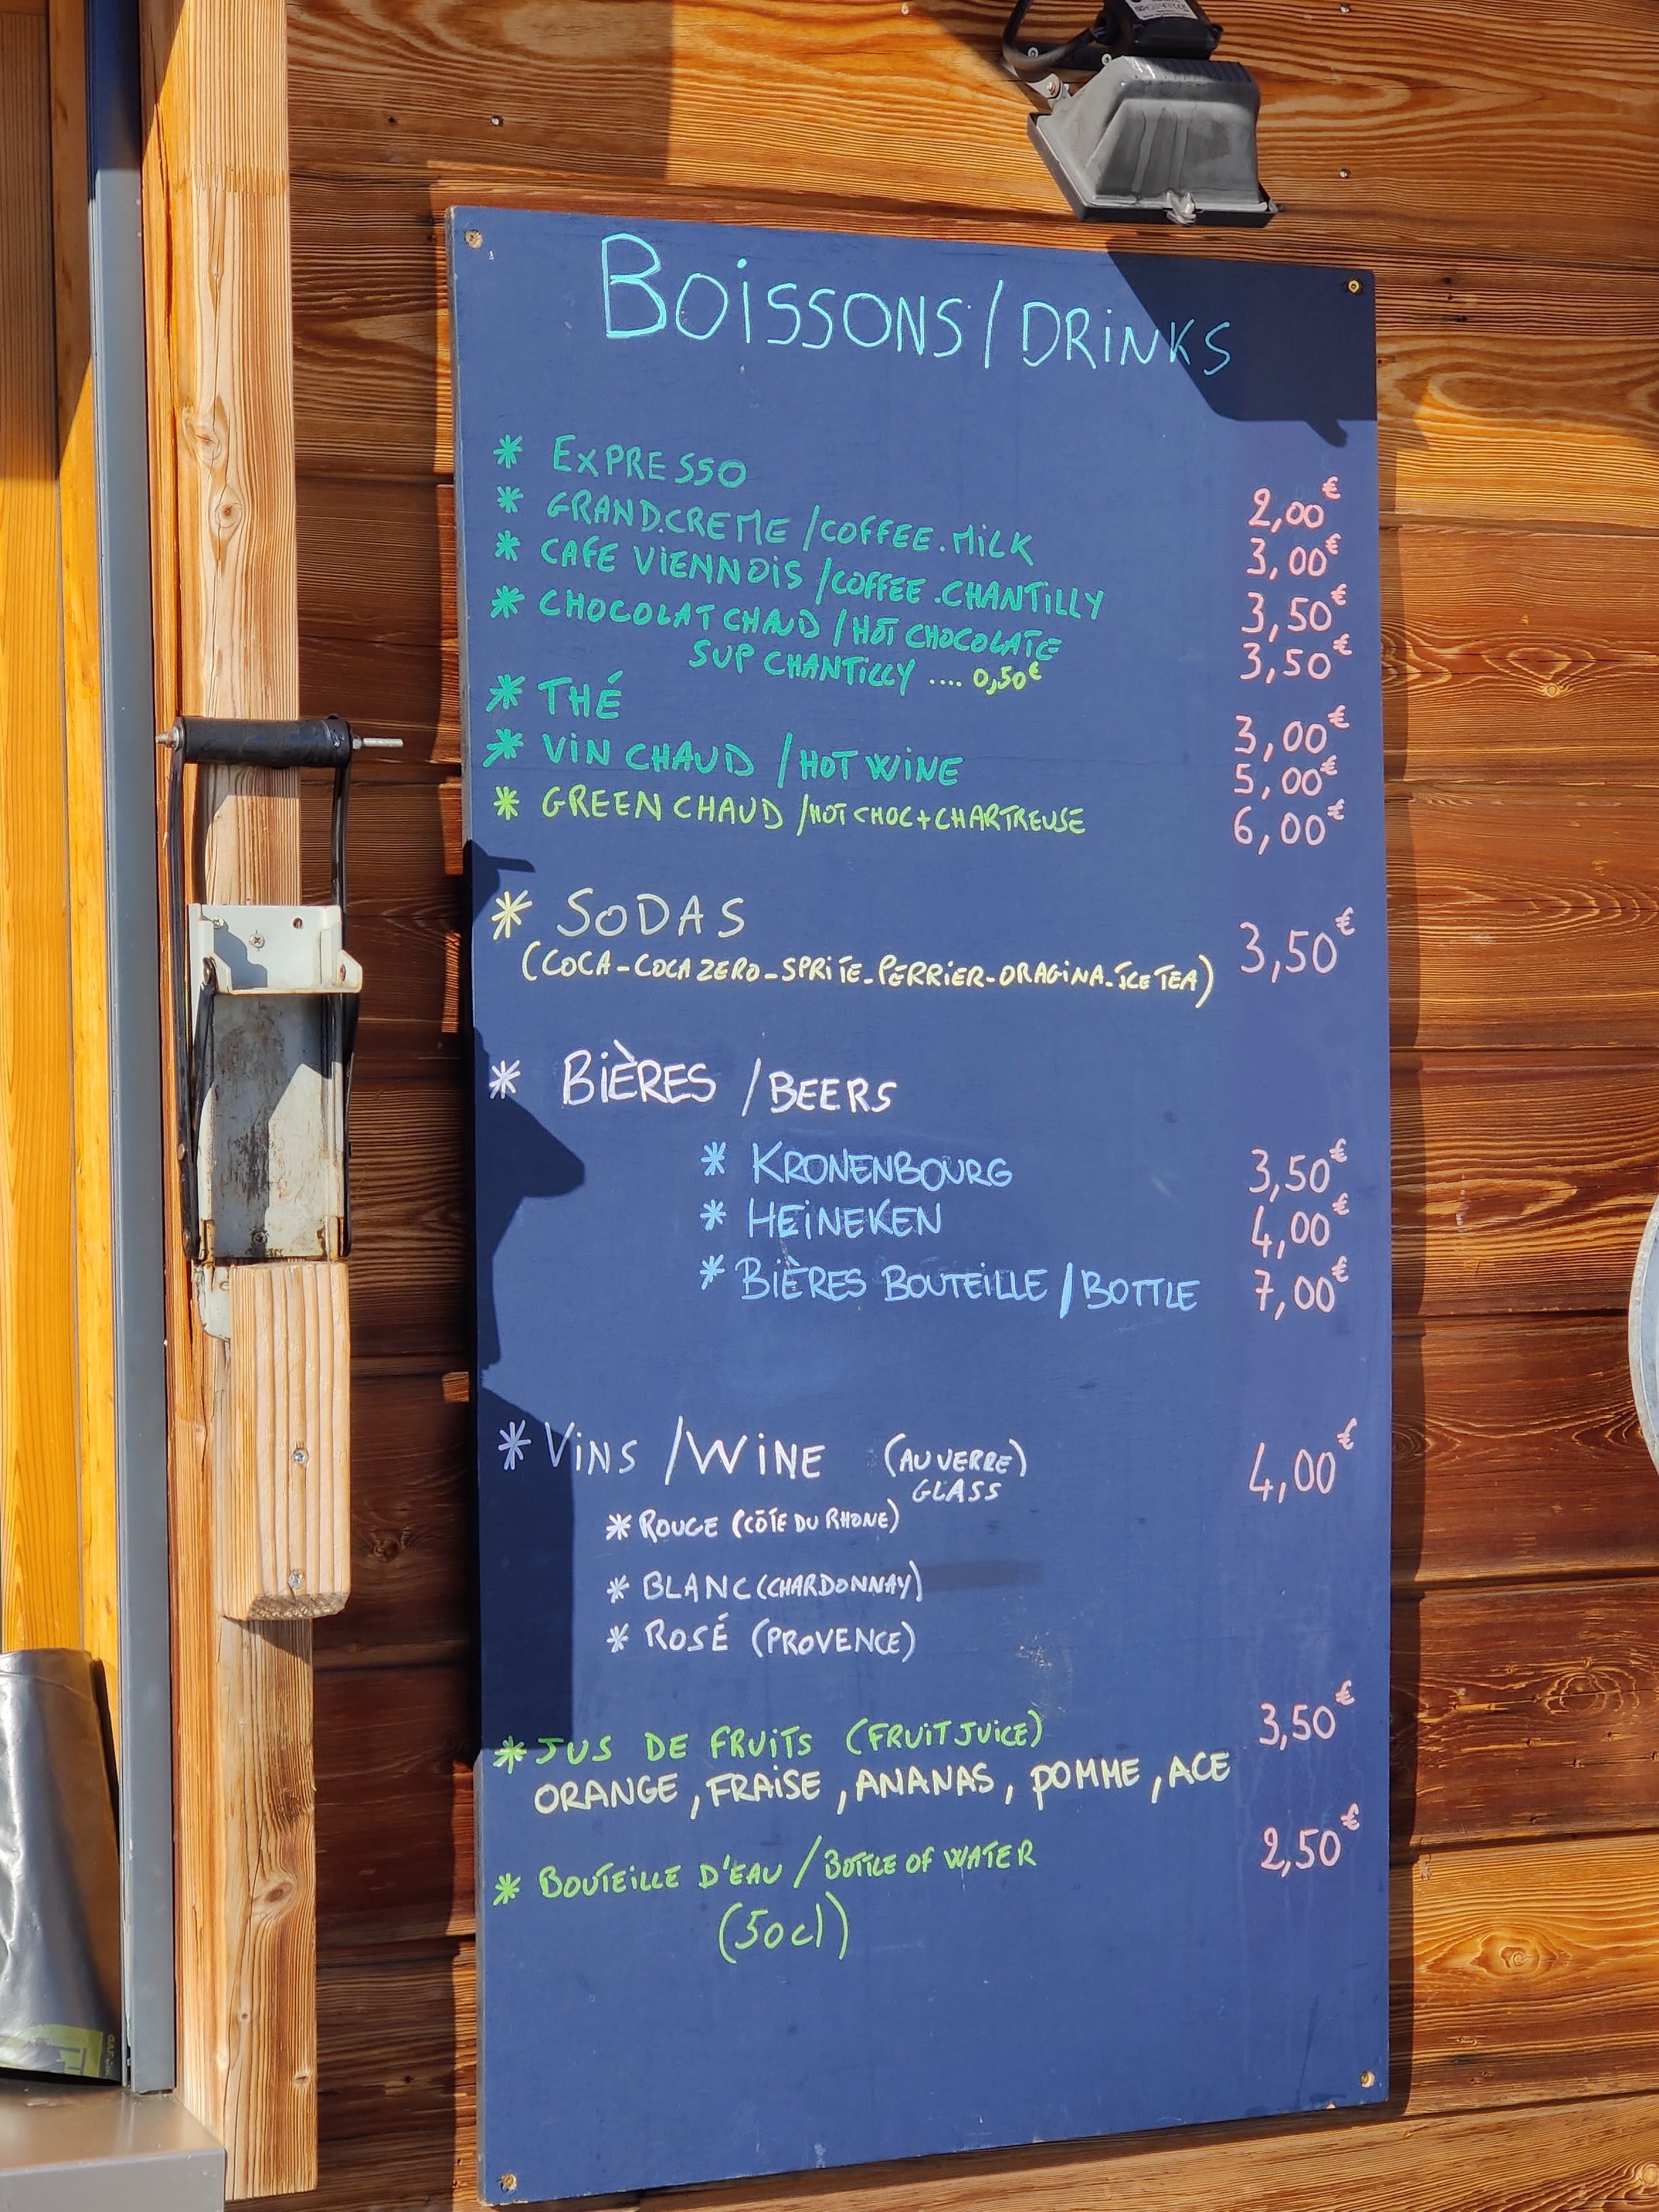 BOISSONS/DRINKS
* EXPRESSO 2,00€
* GRAND.CREME/COFFEE.MILK 3,00€
* CAFE VIENNOIS/COFFEE.CHANTILLY 3,50€
* CHOCOLAT CHAUD/HOT CHOCOLATE 3,50€
SUP CHANTILLY .... 0,50€
* THÉ 3,00€
* VIN CHAUD/HOT WINE 5,00€
* GREEN CHAUD/HOT CHOC+CHARTREUSE 6,00€
* SODAS 3,50€
(COCA-COCA ZERO-SPRITE-PERRIER-ORAGINA-ICE TEA)
* BIÈRES/BEERS
* KRONENBOURG 3,50€
* HEINEKEN 4,00€
* BIÈRES BOUTEILLE/BOTTLE 7,00€
* VINS/WINE (AU VERRE) 4,00€
GLASS
* ROUGE (CÔTE DU RHONE)
* BLANC (CHARDONNAY)
* ROSÉ (PROVENCE)
* JUS DE FRUITS (FRUIT JUICE) 3,50€
ORANGE, FRAISE, ANANAS, POMME, ACE
* BOUTEILLE D'EAU/BOTTLE OF WATER 2,50€
(50cl)